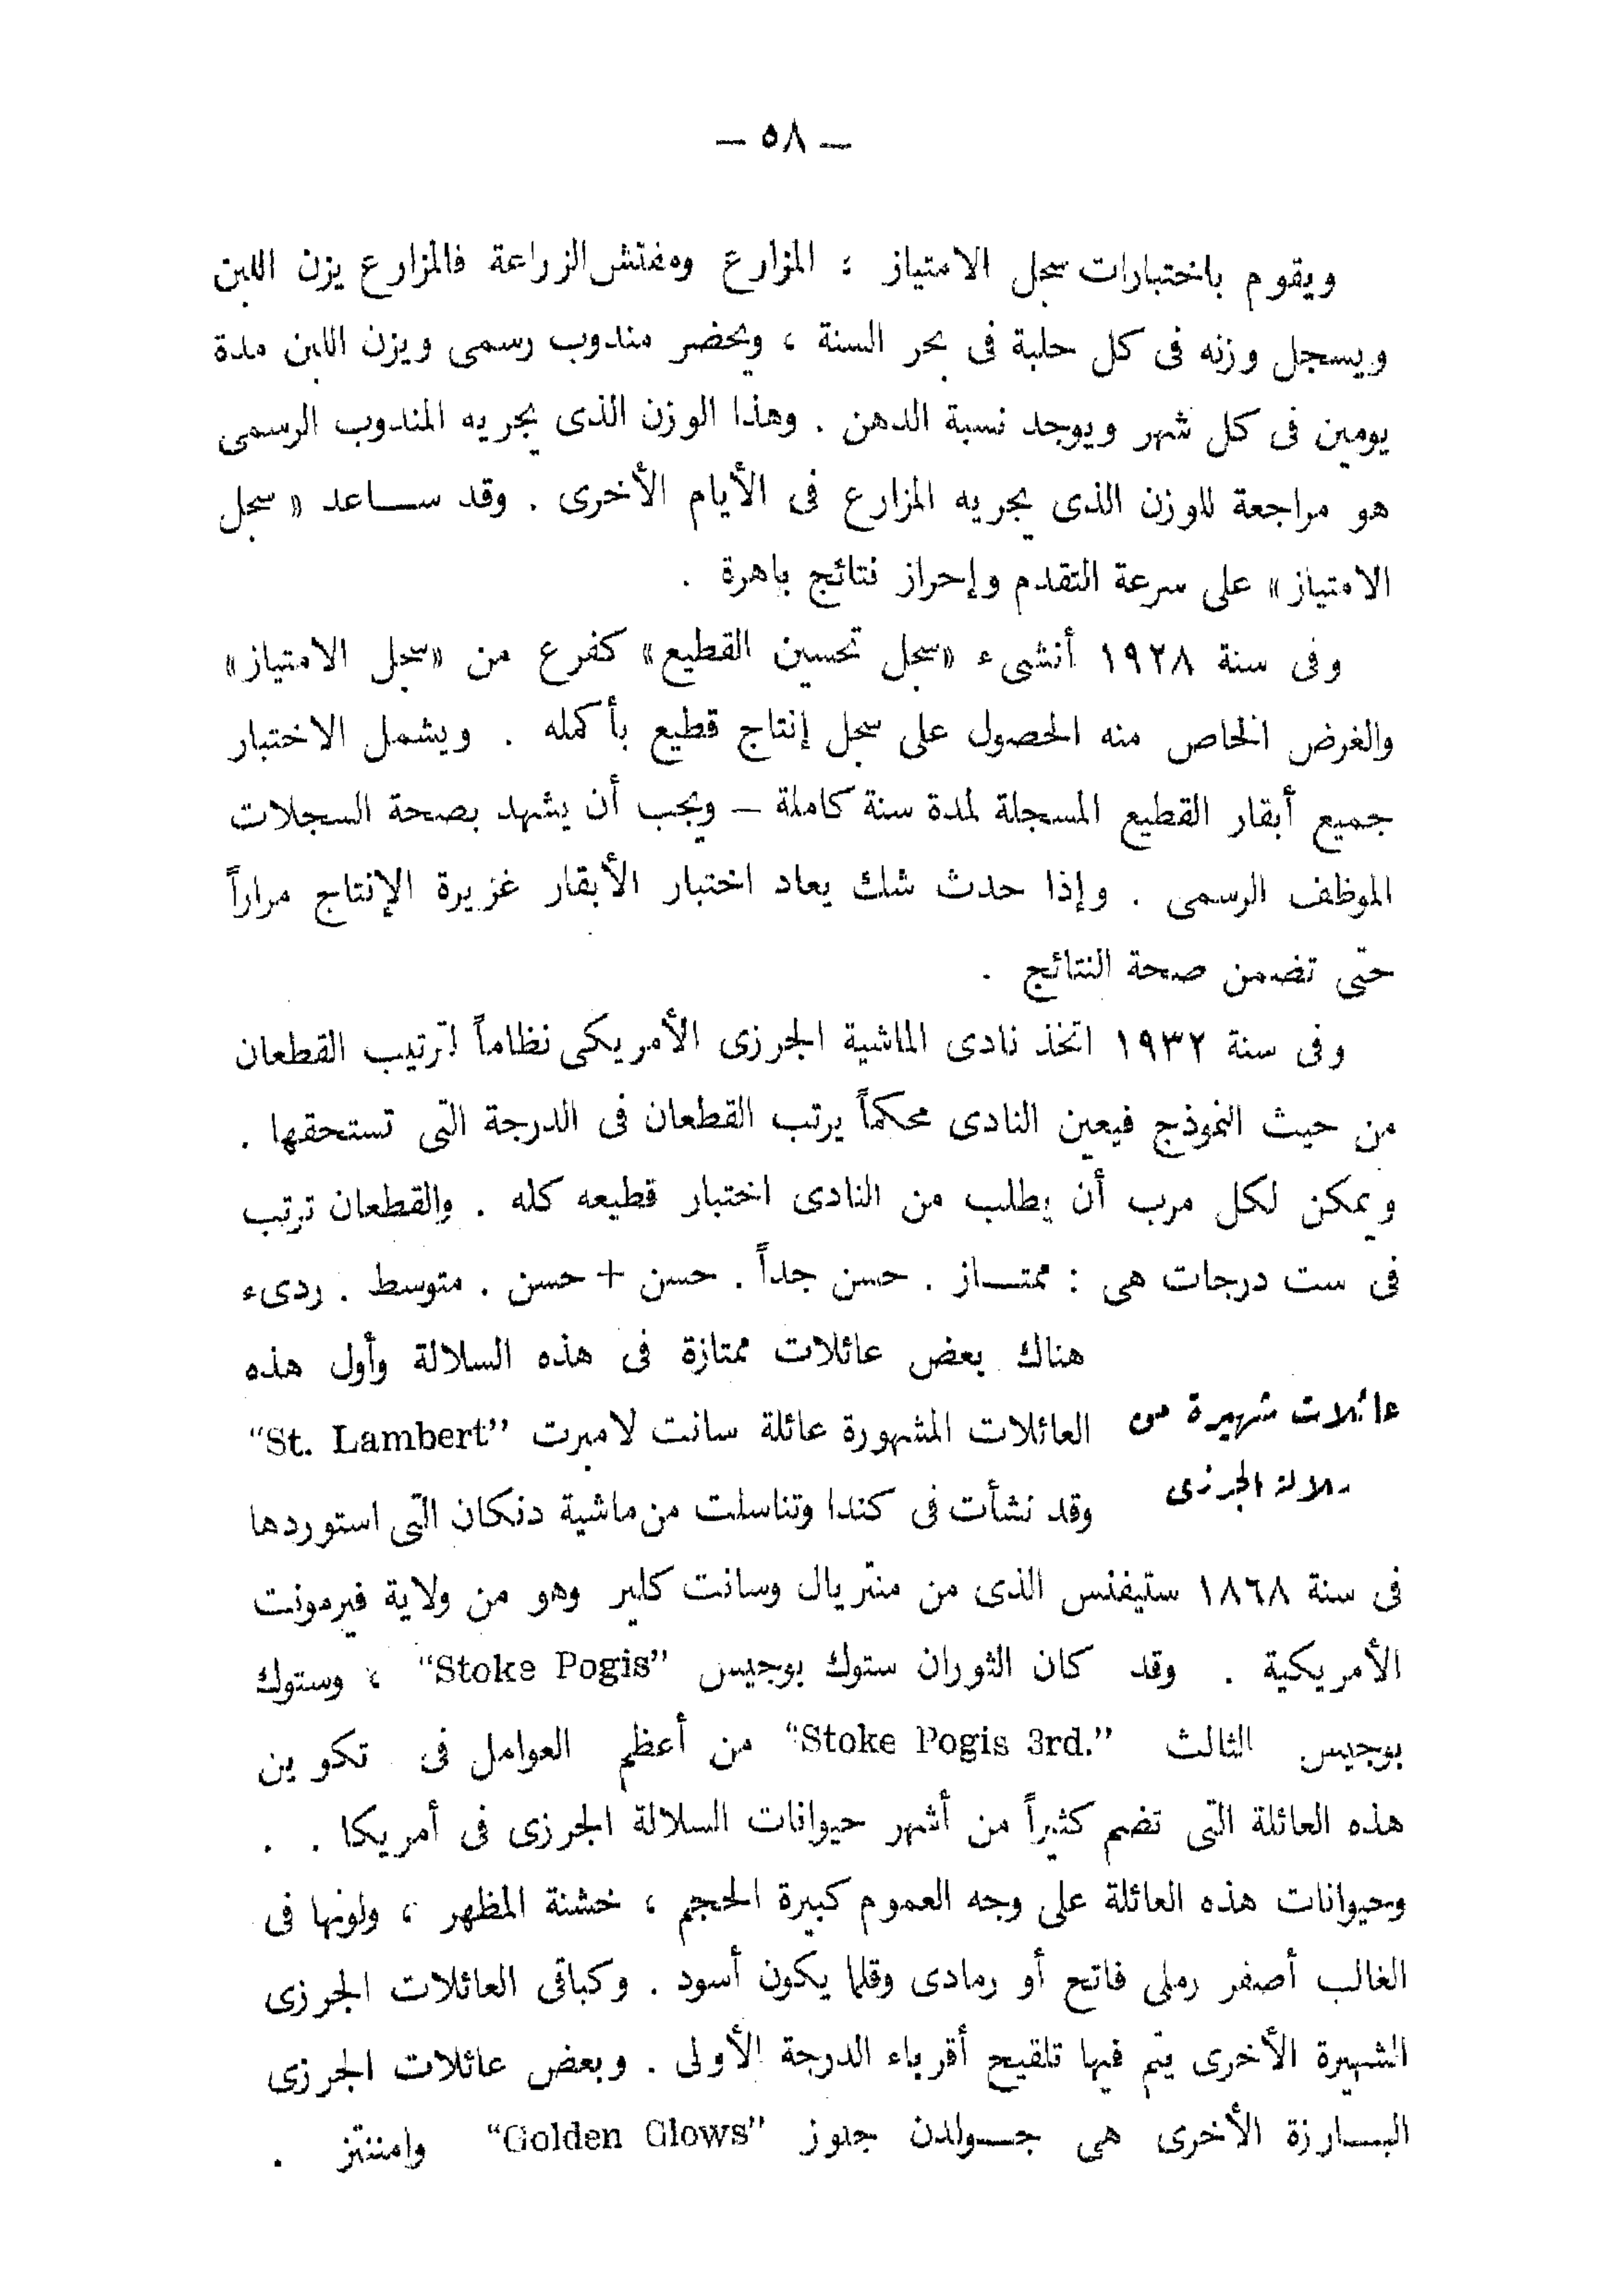 — ٥٨ —
ويقوم باختبارات سجل الامتياز : المزارع ومفتش الزراعة فالمزارع يزن اللبن
ويسجل وزنه فى كل حلبة فى بحر السنة ، ويحضر مندوب رسمى ويزن اللبن مدة
يومين فى كل شهر ويوجد نسبة الدهن . وهذا الوزن الذى يجريه المندوب الرسمى
هو مراجعة للوزن الذى يجريه المزارع فى الأيام الأخرى . وقد ساعد « سجل
الامتياز » على سرعة التقدم وإحراز نتائج باهرة .
وفى سنة ١٩٢٨ أنشىء «سجل تحسين القطيع» كفرع من «سجل الامتياز»
والغرض الخاص منه الحصول على سجل إنتاج قطيع بأكمله . ويشمل الاختبار
جميع أبقار القطيع المسجلة لمدة سنة كاملة – ويجب أن يشهد بصحة السجلات
الموظف الرسمى . وإذا حدث شك يعاد اختبار الأبقار غزيرة الإنتاج مراراً
حتى تضمن صحة النتائج .
وفى سنة ١٩٣٢ اتخذ نادى الماشية الجرزى الأمريكى نظاماً لترتيب القطعان
من حيث النموذج فيعين النادى محكماً يرتب القطعان فى الدرجة التى تستحقها .
ويمكن لكل مرب أن يطلب من النادى اختبار قطيعه كله . والقطعان ترتب
فى ست درجات هى : ممتاز . حسن جداً . حسن + حسن . متوسط . ردىء
عائلات شهيرة من
سلالة الجرزى
هناك بعض عائلات ممتازة فى هذه السلالة وأول هذه
العائلات المشهورة عائلة سانت لامبرت "St. Lambert"
وقد نشأت فى كندا وتناسلت من ماشية دنكان التى استوردها
فى سنة ١٨٦٨ ستيفنس الذى من منتريال وسانت كلير وهو من ولاية فيرمونت
الأمريكية . وقد كان الثوران ستوك بوجيس "Stoke Pogis" ، وستوك
بوجيس الثالث "Stoke Pogis 3rd." من أعظم العوامل فى تكوين
هذه العائلة التى تضم كثيراً من أشهر حيوانات السلالة الجرزى فى أمريكا . .
وحيوانات هذه العائلة على وجه العموم كبيرة الحجم ، خشنة المظهر ، ولونها فى
الغالب أصفر رملى فاتح أو رمادى وقلما يكون أسود . وكباقى العائلات الجرزى
الشهيرة الأخرى يتم فيها تلقيح أقرباء الدرجة الأولى . وبعض عائلات الجرزى
البارزة الأخرى هى جولدن جلوز "Golden Glows" وامننتز .